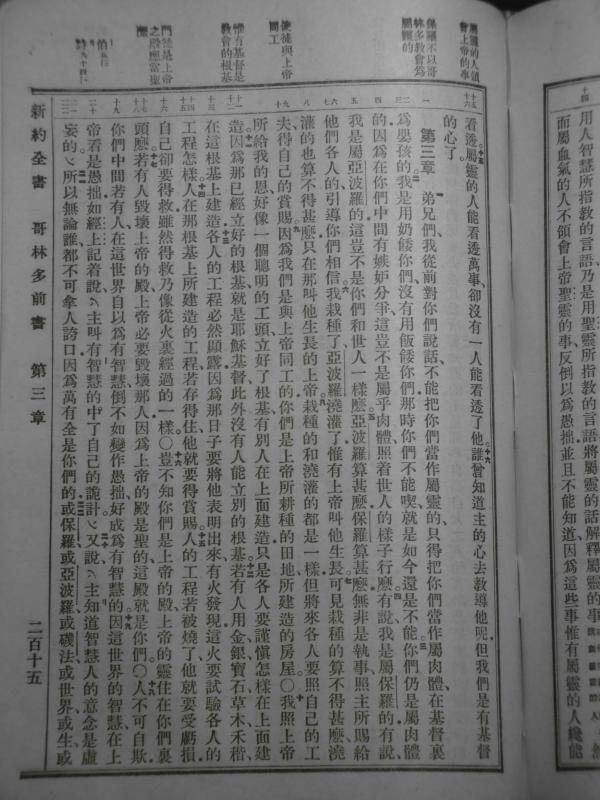 十四
用人智慧所指教的言語乃是用聖靈所指教的言語將屬靈的話解釋屬靈的事
而屬血氣的人不領會上帝聖靈的事反倒以爲愚拙並且不能知道因爲這些事惟有屬靈的人纔能
屬靈的人領會上帝的事
保羅不以哥林多教會爲屬靈的
使徒與上帝同工
惟有基督是教會的根基
門徒是上帝之殿應當聖潔
看透屬靈的人能看透萬事卻沒有一人能看透了他誰曾知道主的心去教導他呢但我們是有基督
的心了
第三章 弟兄們我從前對你們說話不能把你們當作屬靈的只得把你們當作屬肉體在基督裏
爲嬰孩的我是用奶餧你們沒有用飯餧你們那時你們不能喫就是如今還是不能你們仍是屬肉體
的因爲在你們中間有嫉妒分爭這豈不是屬乎肉體照着世人的樣子行麼有說我是屬保羅的有說
我是屬亞波羅的這豈不是你們和世人一樣麼亞波羅算甚麼保羅算甚麼無非是執事照主所賜給
他們各人的引導你們相信我栽種了亞波羅澆灌了惟有上帝叫他生長可見栽種的算不得甚麼澆
灌的也算不得甚麼只在那叫他生長的上帝栽種的和澆灌的都是一樣但將來各人要照自己的工
夫得自己的賞賜因爲我們是與上帝同工的你們是上帝所耕種的田地所建造的房屋〇我照上帝
所給我的恩好像一個聰明的工頭立好了根基有別人在上面建造只是各人要謹愼怎樣在上面建
造因爲那已經立好的根基就是耶穌基督此外沒有人能立別的根基若有人用金銀寶石草木禾稭
在這根基上建造各人的工程必然顯露因爲那日子要將他表明出來有火發現這火要試驗各人的
工程怎樣人在那根基上所建造的工程若存得住他就要得賞賜人的工程若被燒了他就要受虧損
自己卻要得救雖然得救乃像從火裏經過的一樣〇豈不知你們是上帝的殿上帝的靈住在你們裏
頭麼若有人毀壞上帝的殿上帝必要毀壞那人因爲上帝的殿是聖的這殿就是你們〇人不可自欺
你們中間若有人在這世界自以爲有智慧倒不如變作愚拙好成爲有智慧的因這世界的智慧在上
帝看是愚拙如經上記着說主叫有智慧的中了自己的詭計又說主知道智慧人的意念是虛
妄的所以無論誰都不可拿人誇口因爲萬有全是你們的或保羅或亞波羅或磯法或世界或生或
新約全書 哥林多前書 第三章 二百十五